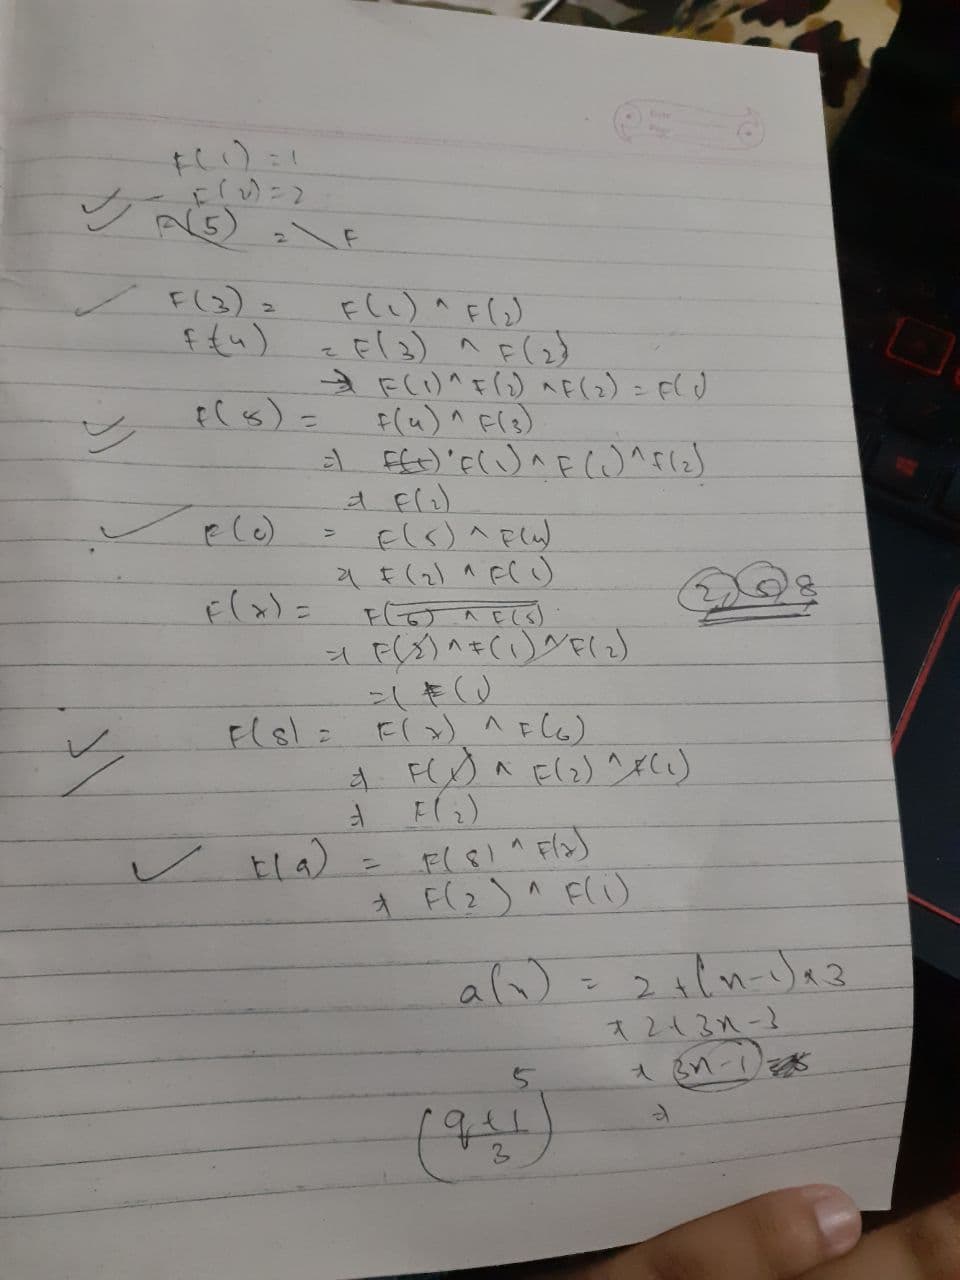 F(1) = 1
F(2) = 2
F(5) = F
F(3) = F(1) ^ F(2)
F(4) = F(3) ^ F(2)
⇒ F(1) ^ F(2) ^ F(2) = F(1)
F(5) = F(4) ^ F(3)
⇒ F(1) ^ F(1) ^ F(2)
⇒ F(2)
F(6) = F(5) ^ F(4)
⇒ F(2) ^ F(1)
2, 5, 8
F(7) = F(6) ^ F(5)
⇒ F(2) ^ F(1) ^ F(2)
⇒ F(1)
F(8) = F(7) ^ F(6)
⇒ F(1) ^ F(2) ^ F(1)
⇒ F(2)
F(9) = F(8) ^ F(7)
⇒ F(2) ^ F(1)
a(n) = 2 + (n-1) × 3
⇒ 2 + 3n - 3
⇒ 3n-1 =
5
⇒
(9+1
3)